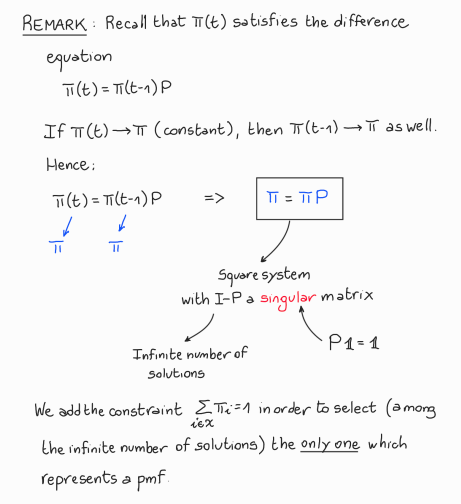 REMARK : Recall that π(t) satisfies the difference
equation
π(t) = π(t-1) P
If π(t) → π (constant), then π(t-1) → π as well.
Hence:
π(t) = π(t-1) P => π = π P
π π
Square system
with I-P a singular matrix
P 𝟙 = 𝟙
Infinite number of
solutions
We add the constraint ∑ πi = 1 in order to select (among
i∈X
the infinite number of solutions) the only one which
represents a pmf.